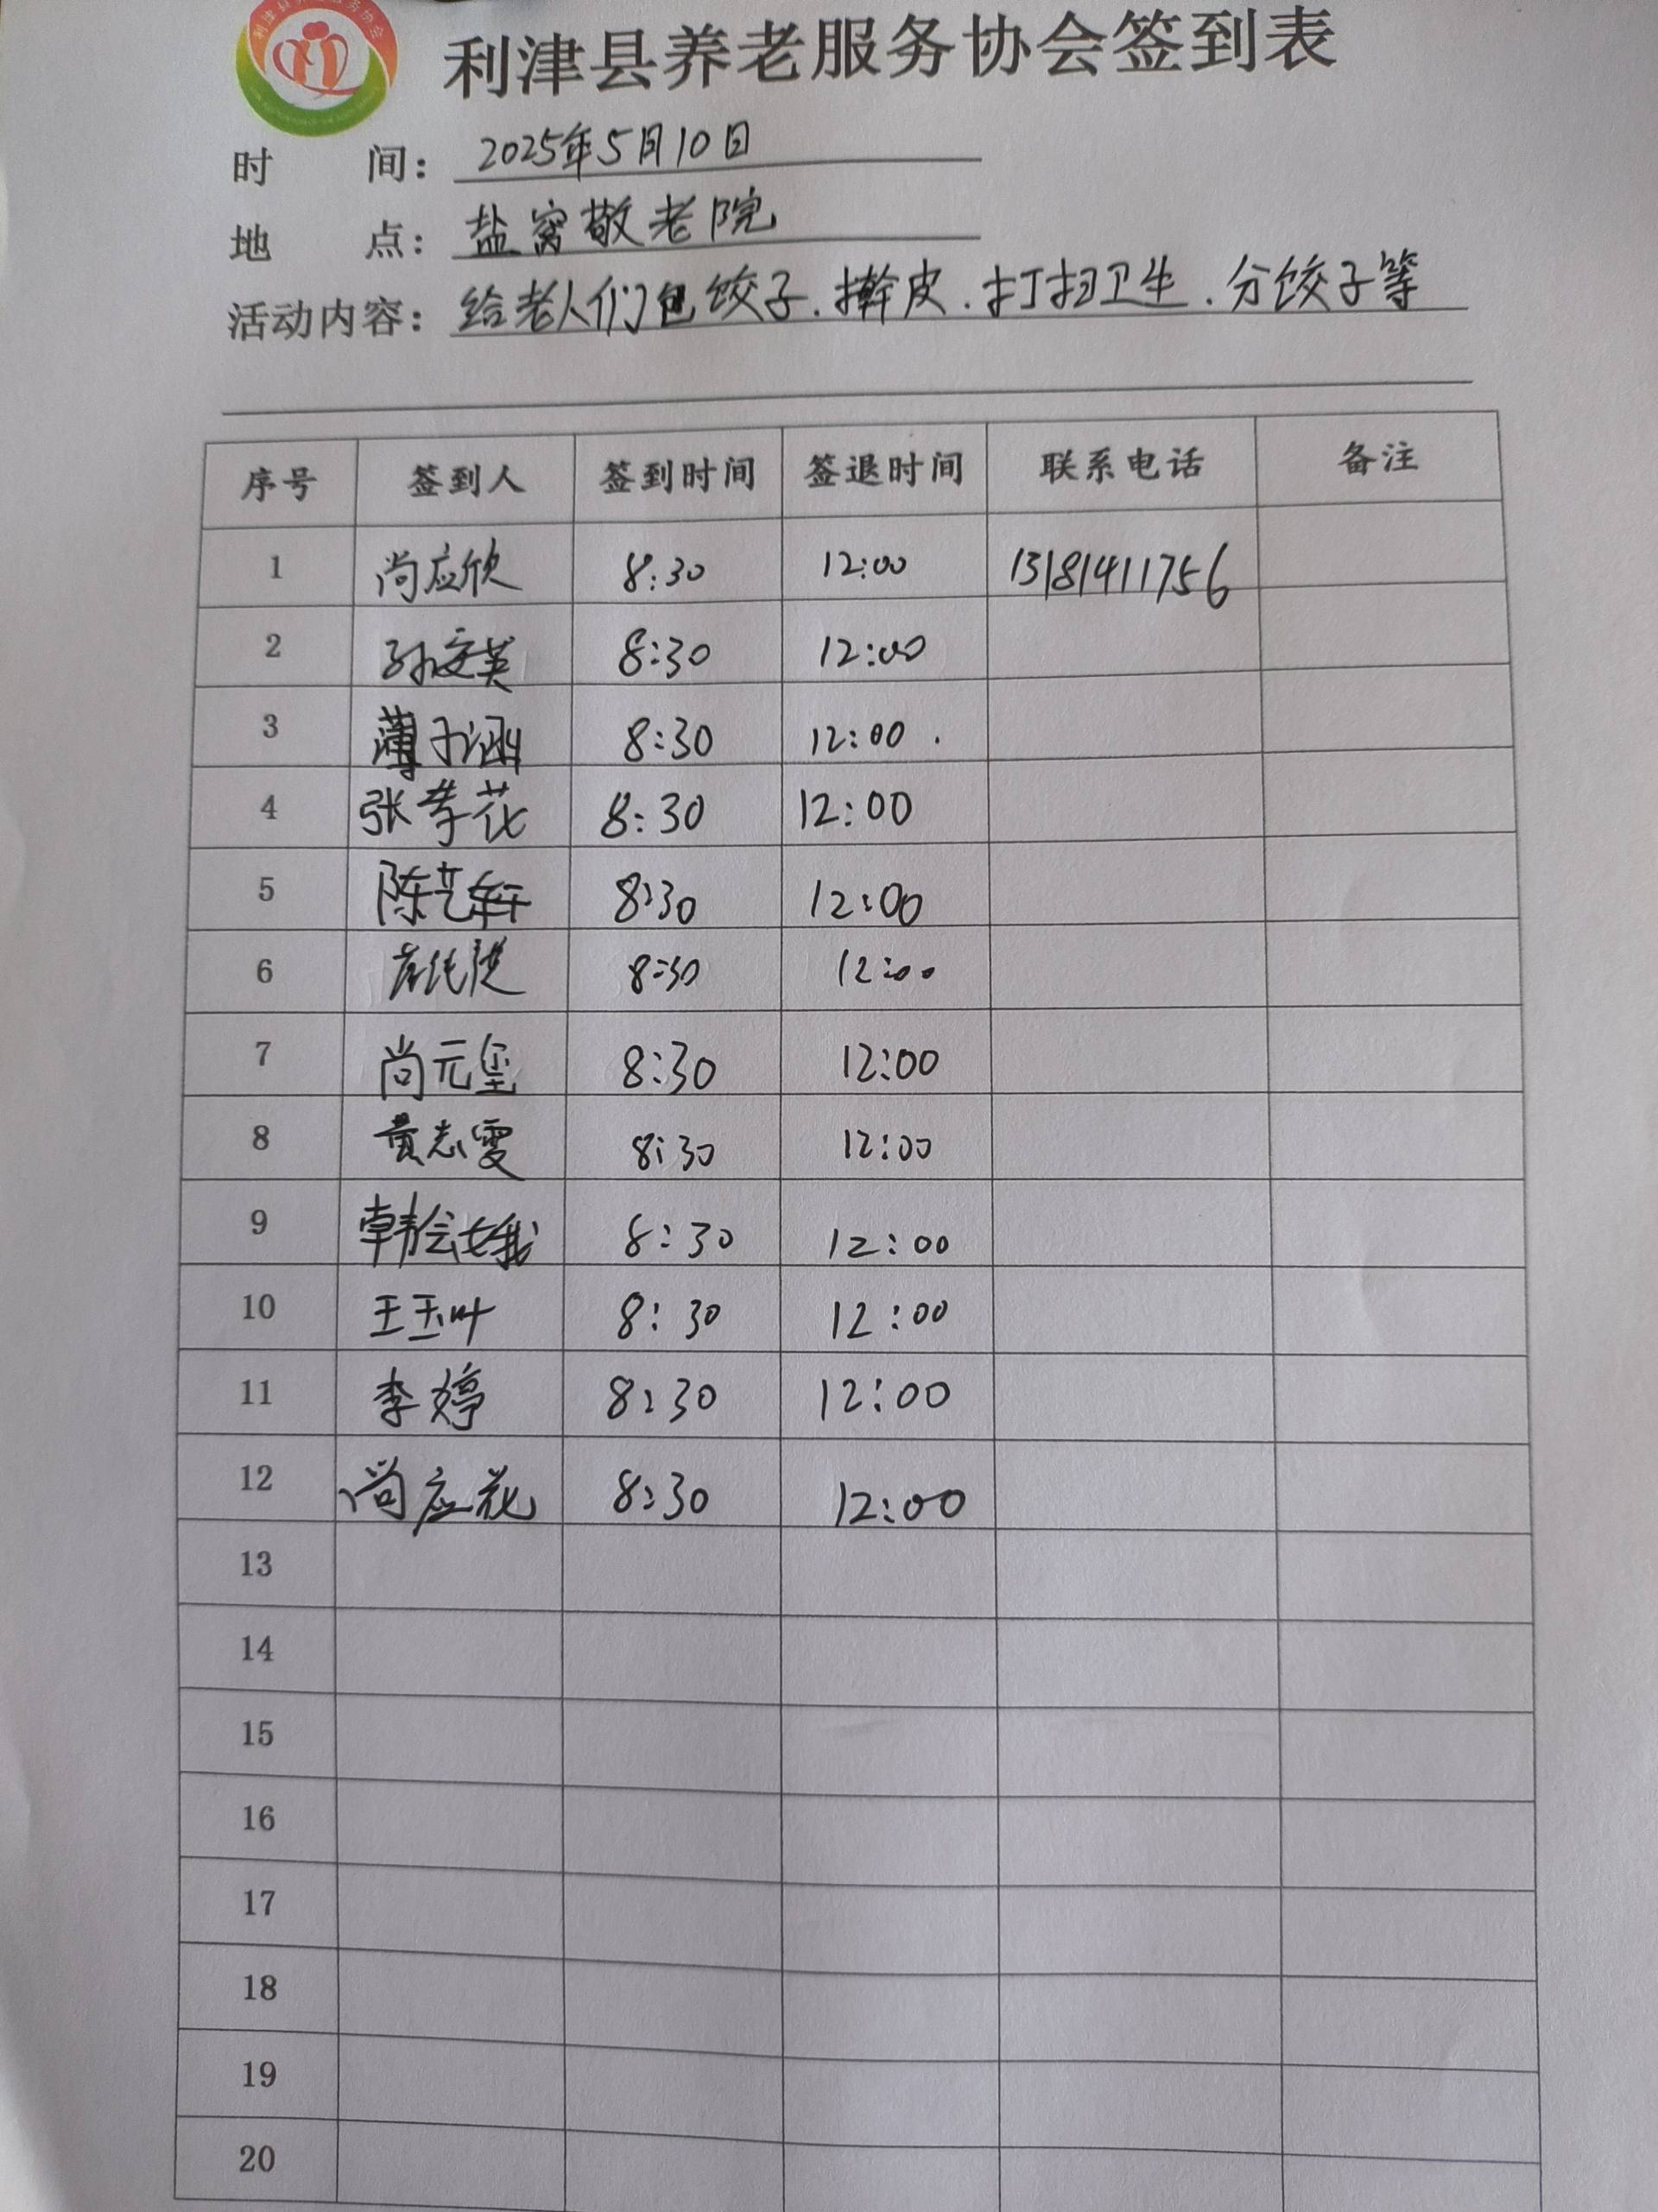 利津县养老服务协会签到表
时 间：2025年5月10日
地 点：盐窝敬老院
活动内容：给老人们包饺子.擀皮.打扫卫生.分饺子等
序号 签到人 签到时间 签退时间 联系电话 备注
1 尚应欣 8:30 12:00 13181411756
2 孙文英 8:30 12:00
3 薄子涵 8:30 12:00
4 张孝花 8:30 12:00
5 陈艺轩 8:30 12:00
6 8:30 12:00
7 尚元玺 8:30 12:00
8 黄志雯 8:30 12:00
9 韩会娥 8:30 12:00
10 王玉叶 8:30 12:00
11 李婷 8:30 12:00
12 尚应花 8:30 12:00
13
14
15
16
17
18
19
20